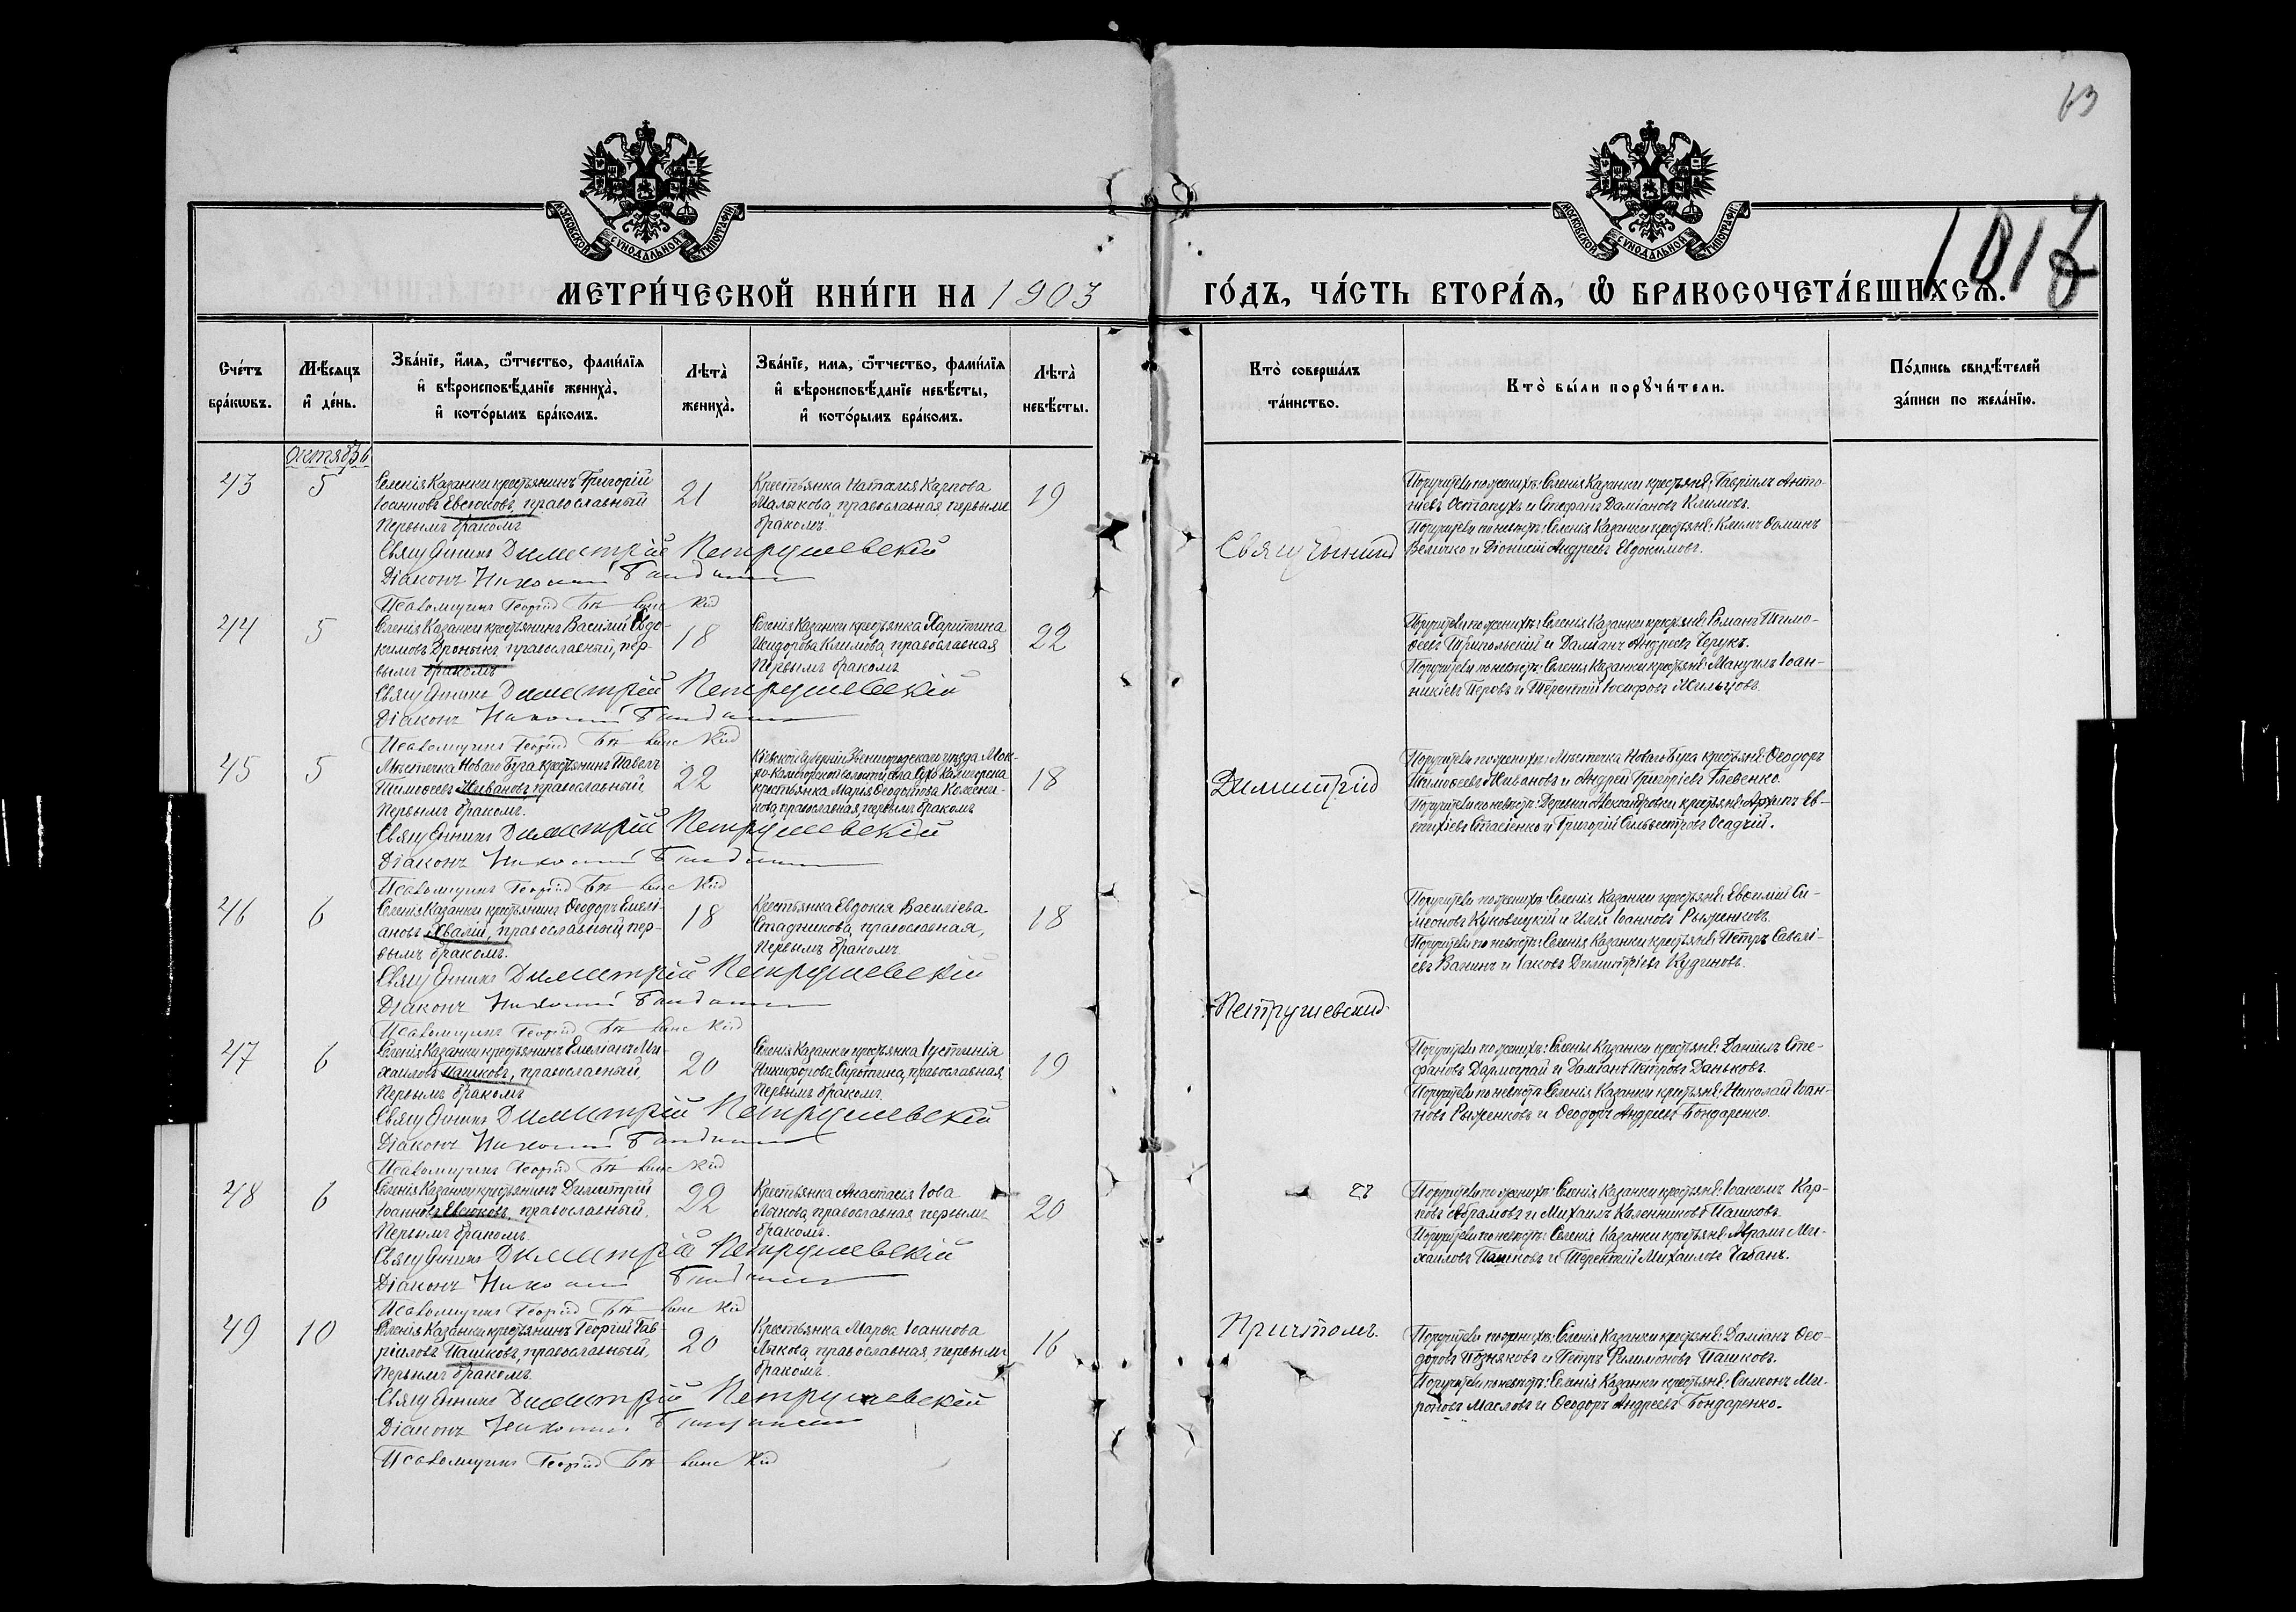 63
1017
МОСКОВСКОЙ СѴНОДАЛЬНОЙ ТИПОГРАФІИ
МОСКОВСКОЙ СѴНОДАЛЬНОЙ ТИПОГРАФІИ
МЕТРИ́ЧЕСКОЙ КНИ́ГИ НА 1903
ГО́ДЪ, ЧА́СТЬ ВТОРА́Ѧ, Ѽ БРАКОСОЧЕТА́ВШИХСѦ.
Сче́тъ бра́кѡвъ.
Мѣ́сяцъ и҆ де́нь.
Зва́нїе, и҆́мѧ, ѻ҆́тчество, фами́лїѧ
и҆ вѣроисповѣ́данїе жениха̀,
и҆ кото́рымъ бра́комъ.
Лѣта̀ жениха̀.
Зва́нїе, имѧ, ѻ҆́тчество, фами́лїѧ
и҆ вѣроисповѣ́данїе невѣ́сты,
и҆ кото́рымъ бра́комъ.
Лѣта̀ невѣ́сты.
Кто̀ соверша́лъ та́инство.
Кто̀ бы́ли порꙋчи́тели.
По́дпись свидѣ́телей за́писи по жела́нїю.
Октябрь
43
5
Селенія Казанки крестьянинъ Григорій
Іоанновъ Евсюковъ, православный
Первымъ бракомъ
21
Крестьянка Наталія Карпова
Малыкова, православная первымъ
бракомъ
19
Поручители по женихѣ: Селенія Казанки крестьяне: Гавріилъ Анто-
ніевъ Остапухъ и Стефанъ Даміановъ Климовъ.
Поручители по невѣстѣ: Селенія Казанки крестьяне: Климъ Ѳоминъ
Величко и Діонисій Андреевъ Евдокимовъ.
Священникъ Димитрій Петрушевскій
Діаконъ Николай
Псаломщикъ Георгій
Священникъ
44
5
Селенія Казанки крестьянинъ Василій Евдо-
кимовъ Дронынъ православный, пер-
вымъ бракомъ
18
Селенія Казанки крестьянка Харитина
Исидорова Климова, православная
Первымъ бракомъ
22
Поручители по женихѣ: Селенія Казанки крестьяне: Романъ Тимо-
ѳеевъ и Даміанъ Андреевъ Черукъ.
Поручители по невѣстѣ: Селенія Казанки крестьяне: Мануилъ Іоан-
никіевъ Перовъ и Терентій Іосифовъ Жильцовъ.
Священникъ Димитрій Петрушевскій
Діаконъ Николай
Псаломщикъ Георгій
45
5
Мѣстечка Новаго Буга крестьянинъ Павелъ
Тимоѳеевъ Живановъ православный
Первымъ бракомъ.
22
Кіевской губерніи Звенигородскаго уѣзда Мок-
ро-Калигорской волости села Сухо Калигорска
крестьянка Марія Ѳеодотова Колесни-
кова, православная, первымъ бракомъ
18
Поручители по женихѣ: Мѣстечка Новаго Буга крестьяне: Ѳеодоръ
Тимоѳеевъ Живановъ и Андрей Григоріевъ Глевенко.
Поручители по невѣстѣ: Деревни Александровки крестьяне: Архипъ Ев-
тихіевъ Стасіенко и Григорій Сильвестровъ Осадчій.
Священникъ Димитрій Петрушевскій
Діаконъ Николай
Псаломщикъ Георгій
Димитрій
46
6
Селенія Казанки крестьянинъ Ѳеодоръ Емелі-
ановъ Хвалій, православный, пер-
вымъ бракомъ.
18
Крестьянка Евдокія Василіева
Стадникова, православная,
Первымъ бракомъ
18
Поручители по женихѣ: Селенія Казанки крестьяне: Евѳимій Си-
меоновъ Куковицкій и Илія Іоанновъ Рыженковъ.
Поручители по невѣстѣ: Селенія Казанки крестьяне: Петръ Савелі-
евъ Ванинъ и Іаковъ Димитріевъ Кудиновъ.
Священникъ Димитрій Петрушевскій
Діаконъ Николай
Псаломщикъ Георгій
Петрушевскій
47
6
Селенія Казанки крестьянинъ Емеліанъ Ми-
хаиловъ Пашковъ, православный,
Первымъ бракомъ
20
Селенія Казанки крестьянка Іустинія
Никифорова Сиротина, православная
Первымъ бракомъ.
19
Поручители по женихѣ: Селенія Казанки крестьяне: Даніилъ Сте-
фановъ Дармограй и Даміанъ Петровъ Даньковъ.
Поручители по невѣстѣ: Селенія Казанки крестьяне: Николай Іоан-
новъ Рыженковъ и Ѳеодоръ Андреевъ Бондаренко.
Священникъ Димитрій Петрушевскій
Діаконъ Николай
Псаломщикъ Георгій
48
6
Селенія Казанки крестьянинъ Димитрій
Іоанновъ Евсюковъ, православный.
Первымъ бракомъ.
22
Крестьянка Анастасія Іова
Лыкова, православная первымъ
бракомъ.
20
съ
Поручители по женихѣ: Селенія Казанки крестьяне: Іоакимъ Кар-
повъ Абрамовъ и Михаилъ Калинниковъ Пашковъ.
Поручители по невѣстѣ: Селенія Казанки крестьяне: Абрамъ Ми-
хаиловъ Пашковъ и Терентій Михаиловъ Чабанъ.
Священникъ Димитрій Петрушевскій
Діаконъ Николай
Псаломщикъ Георгій
49
10
Селенія Казанки крестьянинъ Георгій Гав-
ріиловъ Пашковъ, православный,
Первымъ бракомъ.
20
Крестьянка Марѳа Іоаннова
Лыкова, православная, первымъ
бракомъ.
16
Причтомъ.
Поручители по женихѣ: Селенія Казанки крестьяне: Даміанъ Ѳео-
доровъ Позняковъ и Петръ Филимоновъ Пашковъ.
Поручители по невѣстѣ: Селенія Казанки крестьяне: Симеонъ Ми-
роновъ Масловъ и Ѳеодоръ Андреевъ Бондаренко.
Священникъ Димитрій Петрушевскій
Діаконъ Николай
Псаломщикъ Георгій